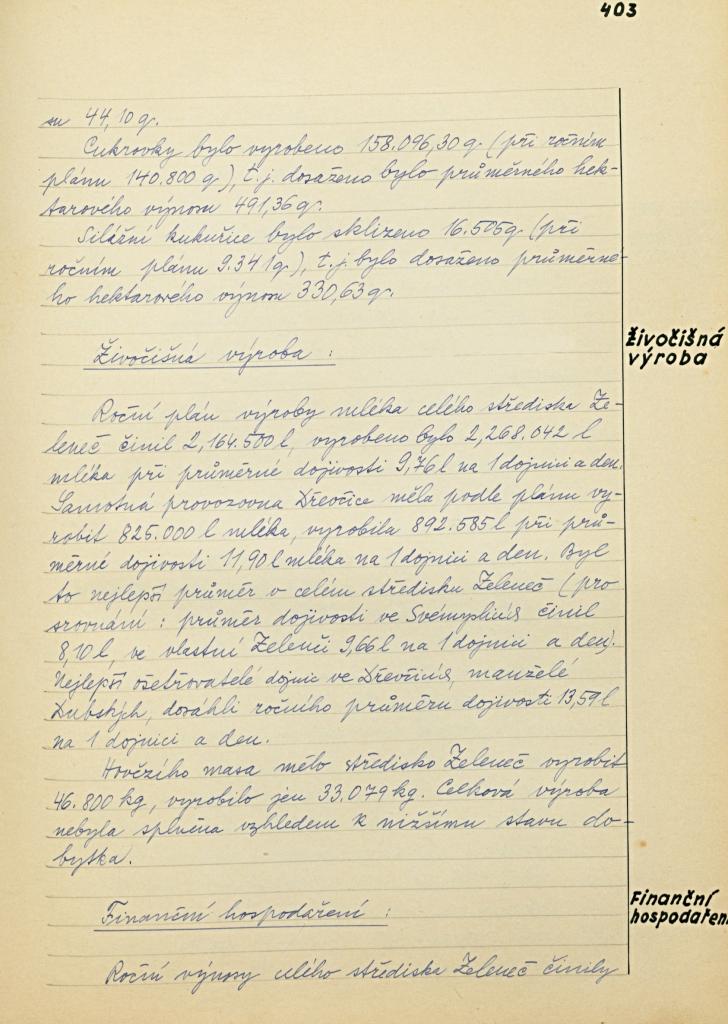 403
su 44,10 q.
Cukrovky bylo vyrobeno 158.096,30 q (při ročním
plánu 140.800 q), t.j. dosaženo bylo průměrného hek-
tarového výnosu 491,36 q.
Silážní kukuřice bylo sklizeno 16.505 q (při
ročním plánu 9.341 q), t.j. bylo dosaženo průměrné-
ho hektarového výnosu 330,63 q.
Živočišná výroba :
Živočišná
výroba
Roční plán výroby mléka celého střediska Ze-
leneč činil 2,164.500 l, vyrobeno bylo 2,268.042 l
mléka při průměrné dojivosti 9,76 l na 1 dojnici a den.
Samotná provozovna Dřevčice měla podle plánu vy-
robit 825.000 l mléka, vyrobila 892.585 l při prů-
měrné dojivosti 11,90 l mléka na 1 dojnici a den. Byl
to nejlepší průměr v celém středisku Zeleneč (pro
srovnání : průměr dojivosti ve Svémyslicích činil
8,10 l, ve vlastní Zelenči 9,66 l na 1 dojnici a den).
Nejlepší ošetřovatelé dojnic ve Dřevčicích, manželé
Dubských, dosáhli ročního průměru dojivosti 13,59 l
na 1 dojnici a den.
Hovězího masa mělo středisko Zeleneč vyrobit
46.800 kg, vyrobilo jen 33.079 kg. Celková výroba
nebyla splněna vzhledem k nižšímu stavu do-
bytka.
Finanční hospodaření :
Finanční
hospodařen
Roční výnosy celého střediska Zeleneč činily